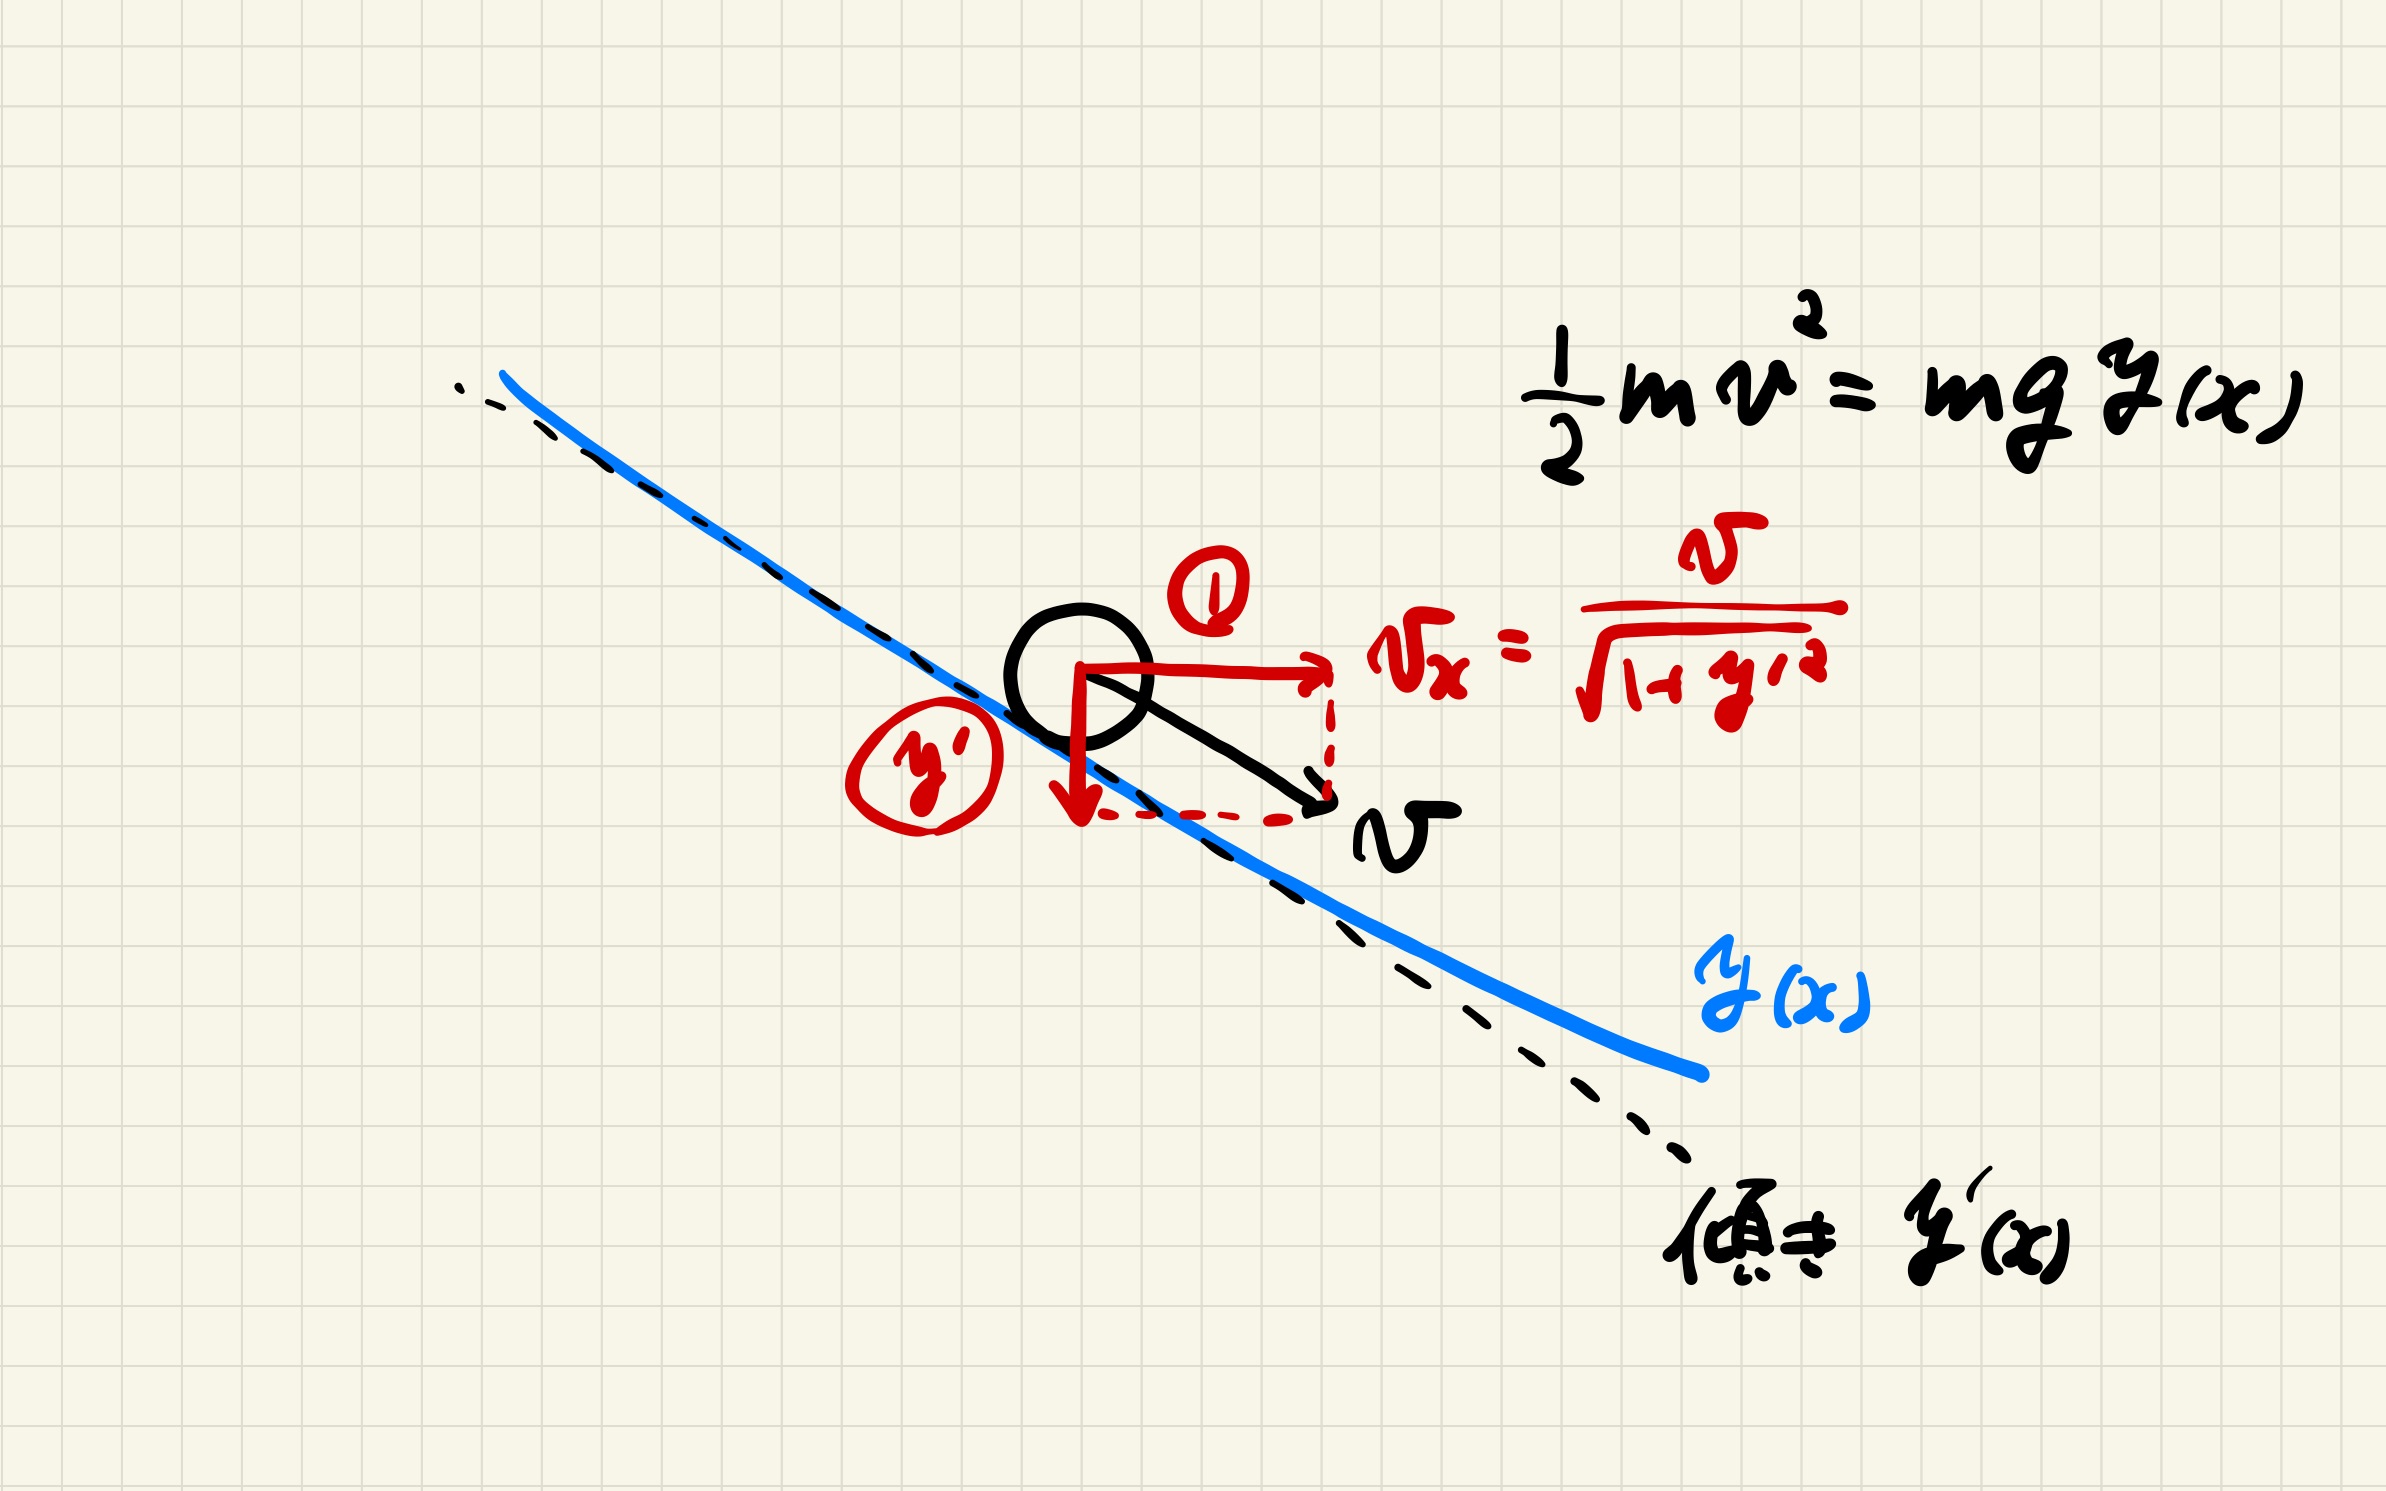 ½mv² = mgy(x)
①
vₓ = v / √(1+y'²)
y'
v
y(x)
= y'(x)